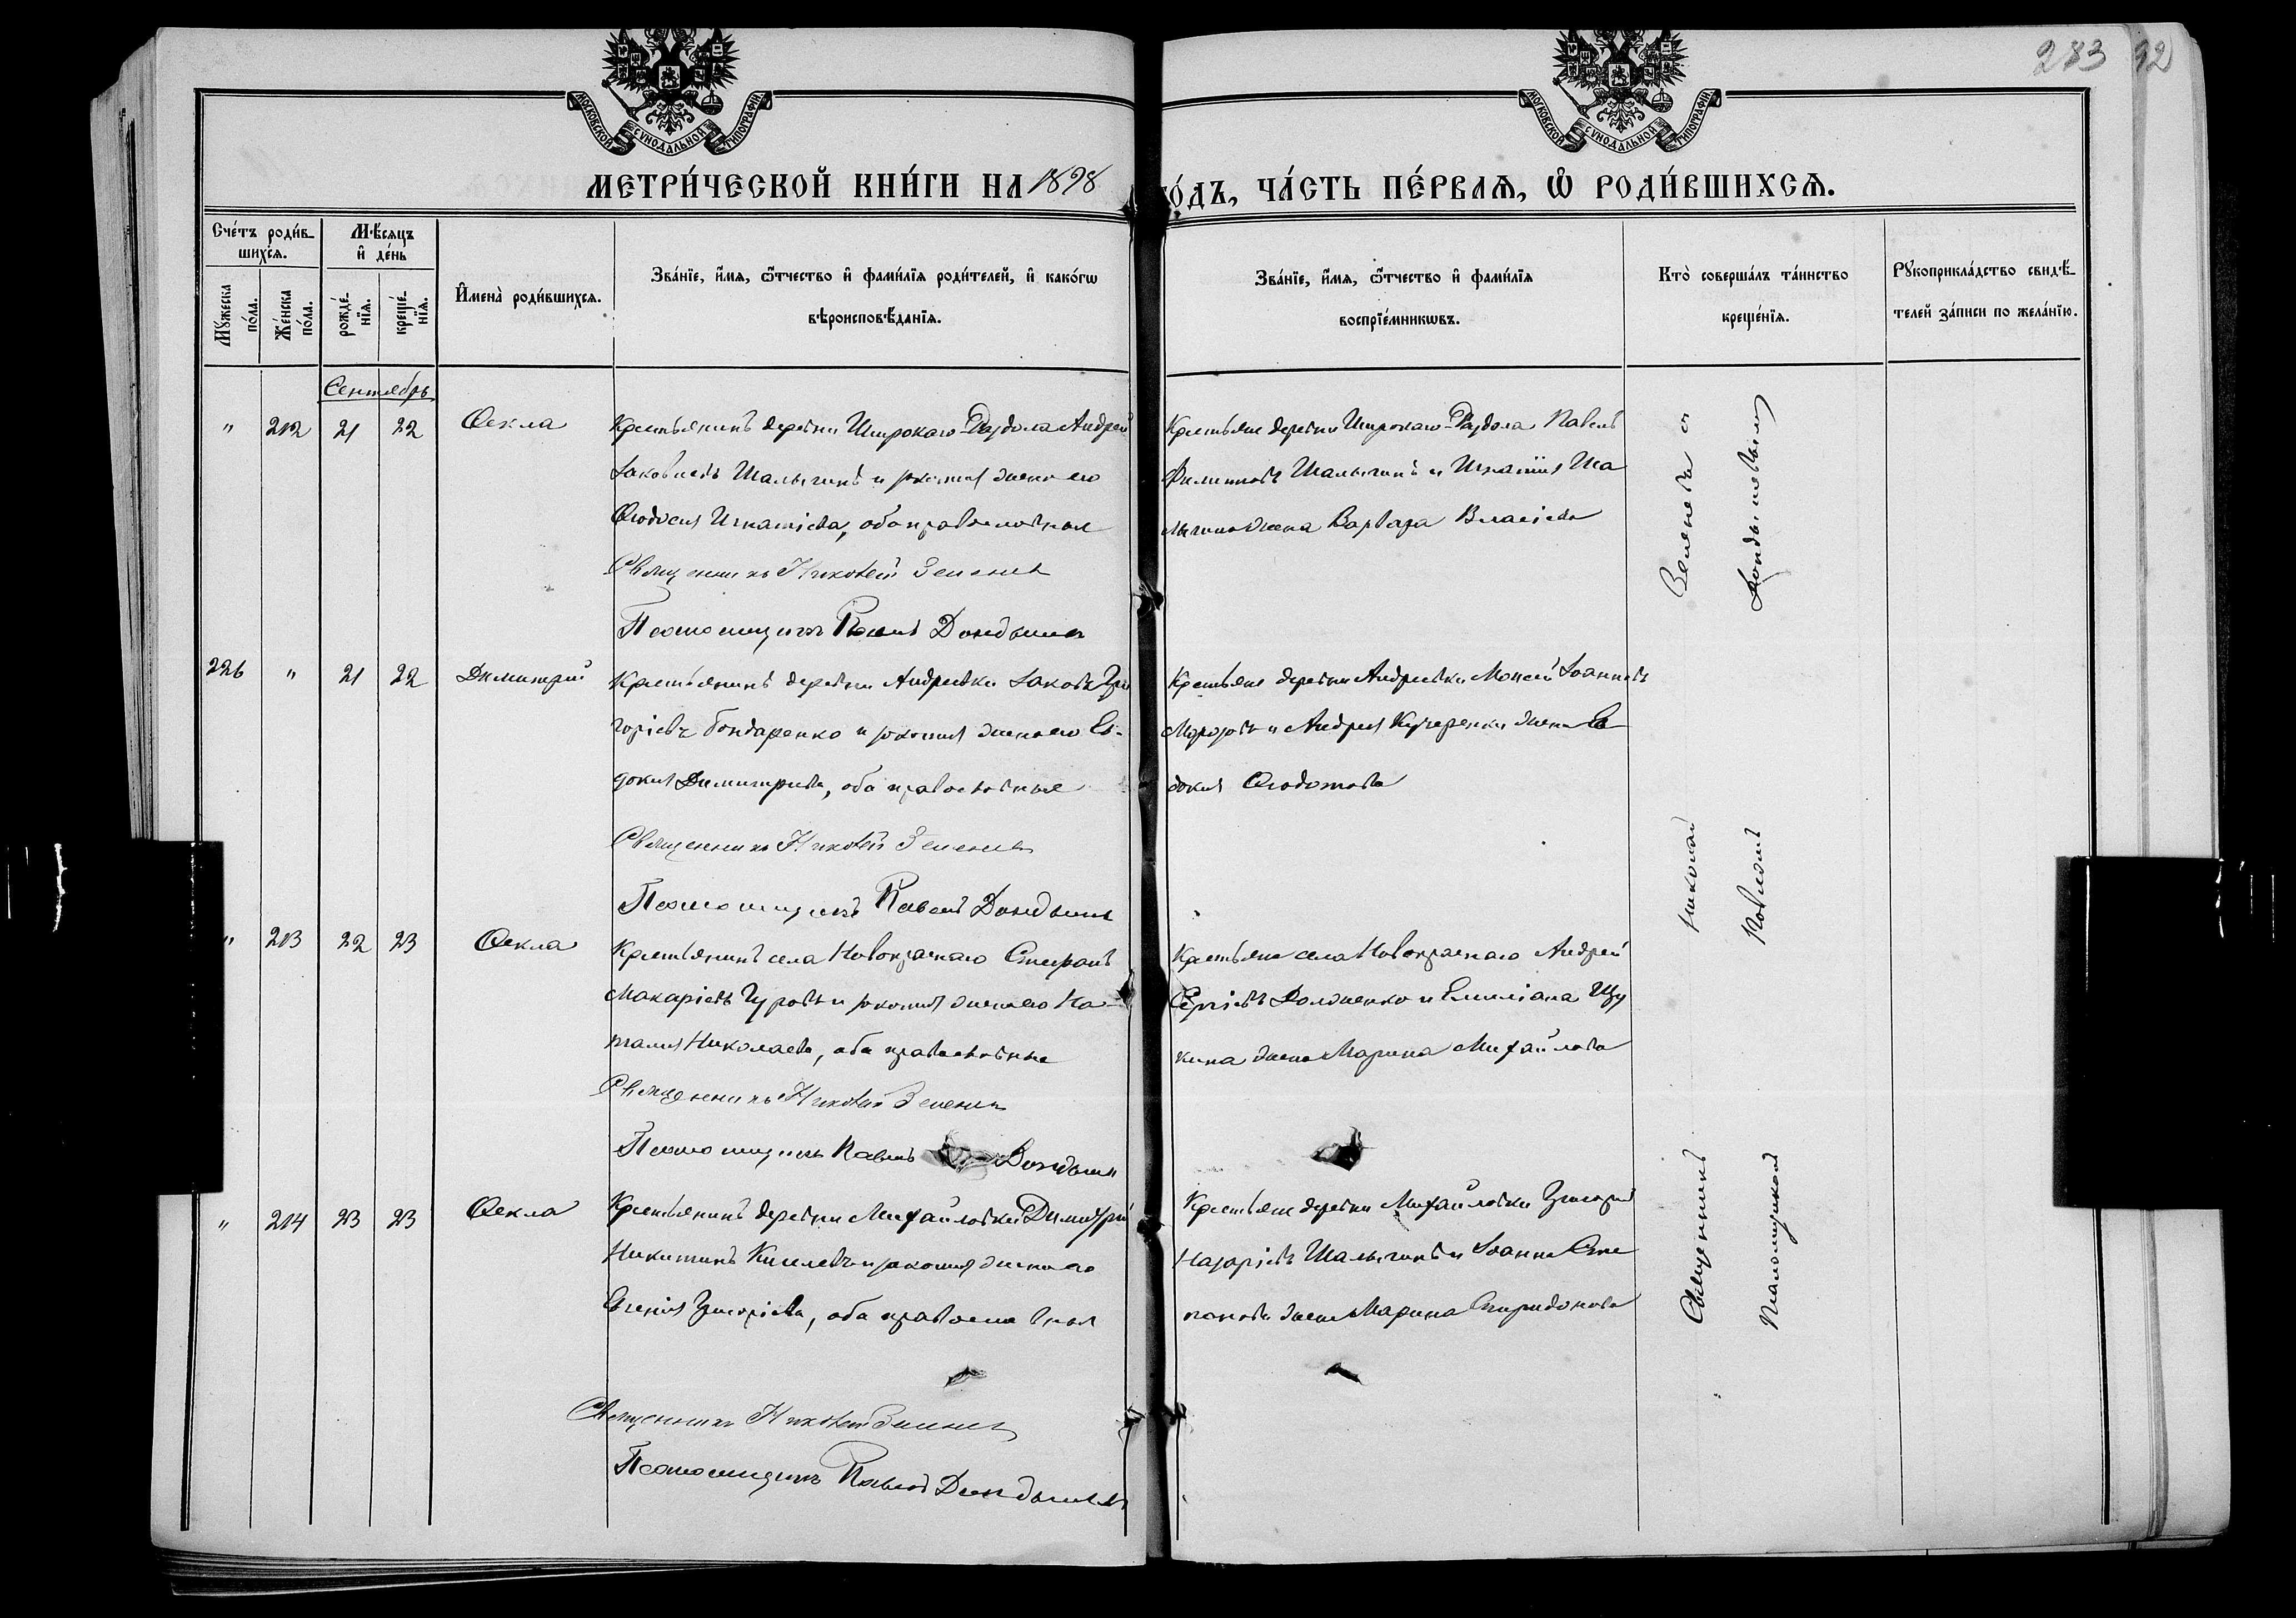 283 92
МОСКОВСКОЙ СѴНОДАЛЬНОЙ ТИПОГРАФІИ
МОСКОВСКОЙ СѴНОДАЛЬНОЙ ТИПОГРАФІИ
МЕТРИ́ЧЕСКОЙ КНИ́ГИ НА 1898 го́дъ, ЧА́СТЬ ПЕ́РВАѦ, Ѡ РОДИ́ВШИХСѦ.
Сче́тъ роди́в-
шихсѧ.
Мꙋжеска по́ла.
Же́нска по́ла.
Мѣ́сяцъ
и҆ де́нь
рожде́-
нїѧ.
креще́-
нїѧ.
И҆мена̀ роди́вшихсѧ.
Зва́нїе, и҆́мѧ, ѻ҆́тчество и҆ фами́лїѧ роди́телей, и҆ како́гѡ
вѣроисповѣ́данїѧ.
Зва́нїе, и҆́мѧ, ѻ҆́тчество и҆ фами́лїѧ
воспрїе́мникѡвъ.
Кто̀ соверша́лъ та́инство
креще́нїѧ.
Рꙋкоприкла́дство свидѣ́-
телей за́писи по жела́нїю.
Сентябрь
" 212 21 22 Ѳекла
Крестьянинъ деревни Широкаго-Раздола Андрей
Іаковлевъ Шалыгинъ и законная жена его
Ѳеодосія Игнатіева, оба православные
Священникъ Николай Зеленевъ
Псаломщикъ Павелъ Дондышевъ
Крестьяне деревни Широкаго-Раздола Павелъ
Филипповъ Шалыгинъ и Игнатія Ша
лыгина жена Варвара Власіева
226 " 21 22 Димитрий
Крестьянинъ деревни Андреевки Іаковъ Гри
горіевъ Бондаренко и законная жена его Ев-
докия Димитриева, оба православные
Священникъ Николай Зеленевъ
Псаломщикъ Павелъ Дондышевъ
Крестьяне деревни Андреевки Моисей Іоанновъ
Морозовъ и Андрея Кучеренки жена Ев
докия Ѳеодотова
" 213 22 23 Ѳекла
Крестьянинъ села Новокрасного Стефанъ
Макаріевъ Гуровъ и законная жена его На-
талия Николаева, оба православные
Священникъ Николай Зеленевъ
Псаломщикъ Павелъ Дондышевъ
Крестьяне села Новокрасного Андрей
Сергіевъ Долженко и Емиліана Щу
кина жена Марина Михайлова
" 214 23 23 Ѳекла
Крестьянинъ деревни Михайловки Димитрій
Никитинъ Киселевъ и законная жена его
Евгенія Григоріева, оба православные
Священникъ Николай Зеленевъ
Псаломщикъ Павелъ Дондышевъ
Крестьяне деревни Михайловки Григорій
Назаріевъ Шалыгинъ и Іоанна Сте
панова жена Марина Спиридонова
Священникъ Николай Зеленевъ съ
Псаломщикомъ Павломъ Дондышевымъ